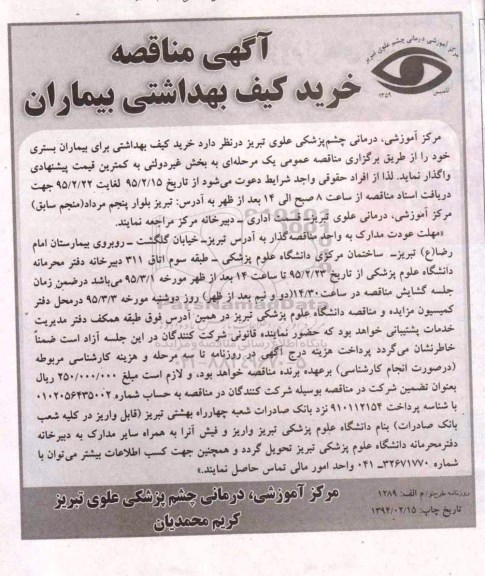 مرکز آموزشی درمانی چشم علوی تبریز
تاسیس ۱۳۵۹
آگهی مناقصه
خرید کیف بهداشتی بیماران
مرکز آموزشی، درمانی چشم‌پزشکی علوی تبریز درنظر دارد خرید کیف بهداشتی برای بیماران بستری
خود را از طریق برگزاری مناقصه عمومی یک مرحله‌ای به بخش غیردولتی به کمترین قیمت پیشنهادی
واگذار نماید. لذا از افراد حقوقی واجد شرایط دعوت می‌شود از تاریخ ۹۵/۲/۱۵ لغایت ۹۵/۲/۲۲ جهت
دریافت اسناد مناقصه از ساعت ۸ صبح الی ۱۴ بعد از ظهر به آدرس: تبریز بلوار پنجم مرداد(منجم سابق)
مرکز آموزشی، درمانی علوی تبریز- سایت اداری - دبیرخانه مرکز مراجعه نمایند.
«مهلت عودت مدارک به واحد مناقصه‌گذار به آدرس تبریز- خیابان گلگشت - روبروی بیمارستان امام
رضا(ع) تبریز- ساختمان مرکزی دانشگاه علوم پزشکی - طبقه سوم اتاق ۳۱۱ دبیرخانه دفتر محرمانه
دانشگاه علوم پزشکی از تاریخ ۹۵/۲/۲۳ تا ساعت ۱۴ بعد از ظهر مورخه ۹۵/۳/۱ می‌باشد درضمن زمان
جلسه گشایش مناقصه در ساعت۱۴/۳۰(دو و نیم بعد از ظهر) روز دوشنبه مورخه ۹۵/۳/۳ درمحل دفتر
کمیسیون مزایده و مناقصه دانشگاه علوم پزشکی تبریز در همین آدرس فوق طبقه همکف دفتر مدیریت
خدمات پشتیبانی خواهد بود که حضور نماینده قانونی شرکت کنندگان در این جلسه آزاد است ضمناً
خاطرنشان می‌گردد پرداخت هزینه درج آگهی در روزنامه تا سه مرحله و هزینه کارشناسی مربوطه
(درصورت انجام کارشناسی) برعهده برنده مناقصه خواهد بود، و لازم است مبلغ ۲۵۰/۰۰۰/۰۰۰ ریال
بعنوان تضمین شرکت در مناقصه بوسیله شرکت کنندگان در مناقصه به حساب شماره ۰۱۰۲۰۵۶۴۳۵۰۰۲
با شناسه پرداخت ۹۱۰۱۱۲۱۵۴ نزد بانک صادرات شعبه چهارراه بهشتی تبریز (قابل واریز در کلیه شعب
بانک صادرات) بنام دانشگاه علوم پزشکی تبریز واریز و فیش آنرا به همراه سایر مدارک به دبیرخانه
دفترمحرمانه دانشگاه علوم پزشکی تبریز تحویل گردد و همچنین جهت کسب اطلاعات بیشتر می‌توان با
شماره ۳۲۶۷۱۷۷۰-۰۴۱ واحد امور مالی تماس حاصل نمایند.»
م الف: ۱۲۸۹
تاریخ چاپ: ۱۳۹۴/۰۲/۱۵
مرکز آموزشی، درمانی چشم پزشکی علوی تبریز
کریم محمدیان